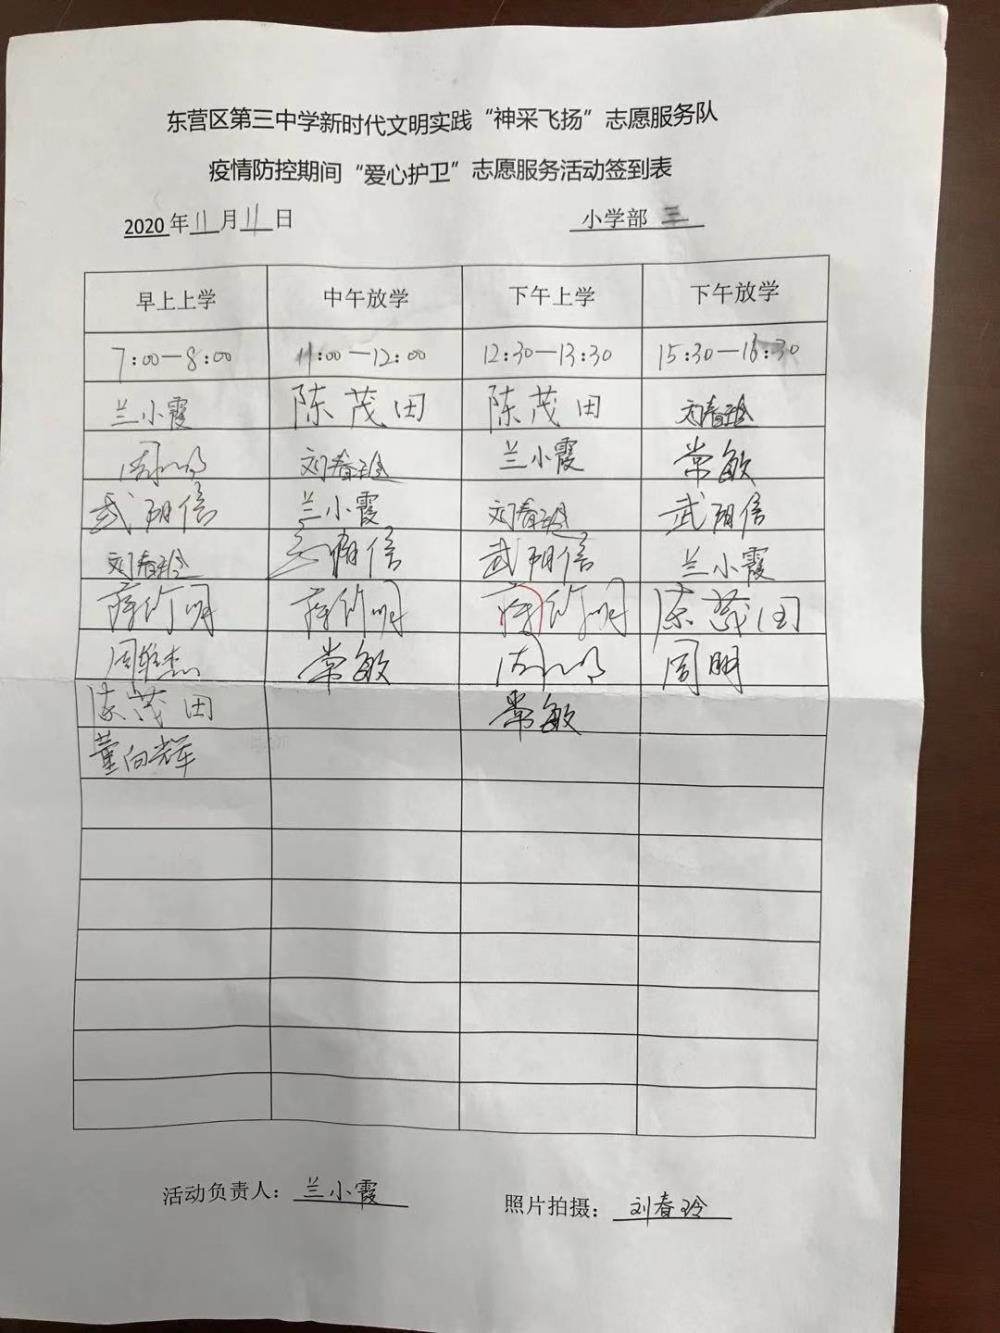 东营区第三中学新时代文明实践“神采飞扬”志愿服务队
疫情防控期间“爱心护卫”志愿服务活动签到表
2020年11月11日 小学部 三
早上上学 中午放学 下午上学 下午放学
7:00—8:00 11:00—12:00 12:30—13:30 15:30—16:30
兰小霞 陈茂田 陈茂田 刘春玲
刘春玲 兰小霞 常敏
武朋信 兰小霞 刘春玲 武朋信
刘春玲 武朋信 武朋信 兰小霞
薛竹明 薛竹明 薛竹明 陈茂田
常敏 周明
陈茂田 常敏
董向辉
活动负责人：兰小霞 照片拍摄：刘春玲